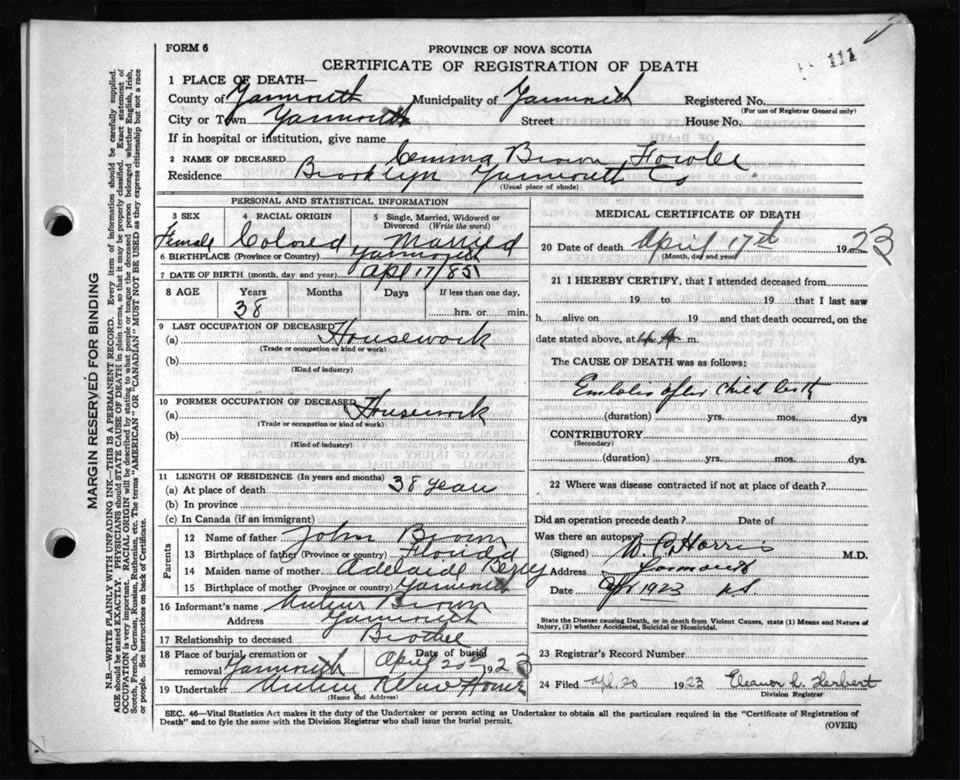 FORM 6
PROVINCE OF NOVA SCOTIA
CERTIFICATE OF REGISTRATION OF DEATH
111
1 PLACE OF DEATH—
County of Yarmouth Municipality of Yarmouth Registered No.
(For use of Registrar General only)
City or Town Yarmouth Street House No.
If in hospital or institution, give name
2 NAME OF DECEASED Brown Fowler
Residence Brooklyn Yarmouth Co
(Usual place of abode)
PERSONAL AND STATISTICAL INFORMATION
3 SEX 4 RACIAL ORIGIN 5 Single, Married, Widowed or Divorced (Write the word)
Female Colored Married
6 BIRTHPLACE (Province or Country) Yarmouth
7 DATE OF BIRTH (month, day and year) Apl 17/
8 AGE Years Months Days If less than one day,
38 hrs. or min.
9 LAST OCCUPATION OF DECEASED
(a) Housework
(Trade or occupation or kind or work)
(b)
(Kind of industry)
10 FORMER OCCUPATION OF DECEASED
(a) Housework
(Trade or occupation or kind or work)
(b)
(Kind of industry)
11 LENGTH OF RESIDENCE (In years and months)
(a) At place of death 38 years
(b) In province
(c) In Canada (if an immigrant)
Parents
12 Name of father John Brown
13 Birthplace of father (Province or country) Florida
14 Maiden name of mother Adelaide Berry
15 Birthplace of mother (Province or country) Yarmouth
16 Informant's name Brown
Address Yarmouth
17 Relationship to deceased Brother
18 Place of burial, cremation or removal Yarmouth Date of burial April 20th 1923
19 Undertaker
(Name and Address)
MEDICAL CERTIFICATE OF DEATH
20 Date of death April 17th 1923
(Month, day and year)
21 I HEREBY CERTIFY, that I attended deceased from
19 to 19 that I last saw
h alive on 19 and that death occurred, on the
date stated above, at m.
The CAUSE OF DEATH was as follows:
after child birth
(duration) yrs. mos. dys
CONTRIBUTORY
(Secondary)
(duration) yrs. mos. dys.
22 Where was disease contracted if not at place of death?
Did an operation precede death? Date of
Was there an autopsy
(Signed) Harris M.D.
Address Yarmouth
Date Apr 1923 N.S.
State the Disease causing Death, or in death from Violent Causes, state (1) Means and Nature of Injury, (2) whether Accidental, Suicidal or Homicidal.
23 Registrar's Record Number
24 Filed Apl. 20 1923 Eleanor L. Herbert
Division Registrar
SEC. 46—Vital Statistics Act makes it the duty of the Undertaker or person acting as Undertaker to obtain all the particulars required in the "Certificate of Registration of
Death" and to file the same with the Division Registrar who shall issue the burial permit.
(OVER)
MARGIN RESERVED FOR BINDING
N.B.—WRITE PLAINLY WITH UNFADING INK—THIS IS A PERMANENT RECORD. Every item of information should be carefully supplied.
AGE should be stated EXACTLY. PHYSICIANS should STATE CAUSE OF DEATH in plain terms, so that it may be properly classified. Exact statement of
OCCUPATION is very important. RACIAL ORIGIN will be described by stating to what people or tongue the deceased person belonged whether English, Irish,
Scotch, French, German, Russian, Ruthenian, etc. The terms "AMERICAN" or "CANADIAN" MUST NOT BE USED as they express citizenship but not a race
or people. See instructions on back of Certificate.